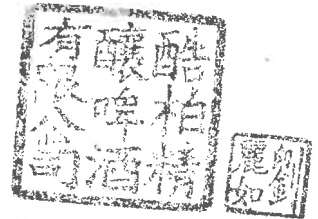 酷柏精
釀啤酒
有限公司
劉麗如